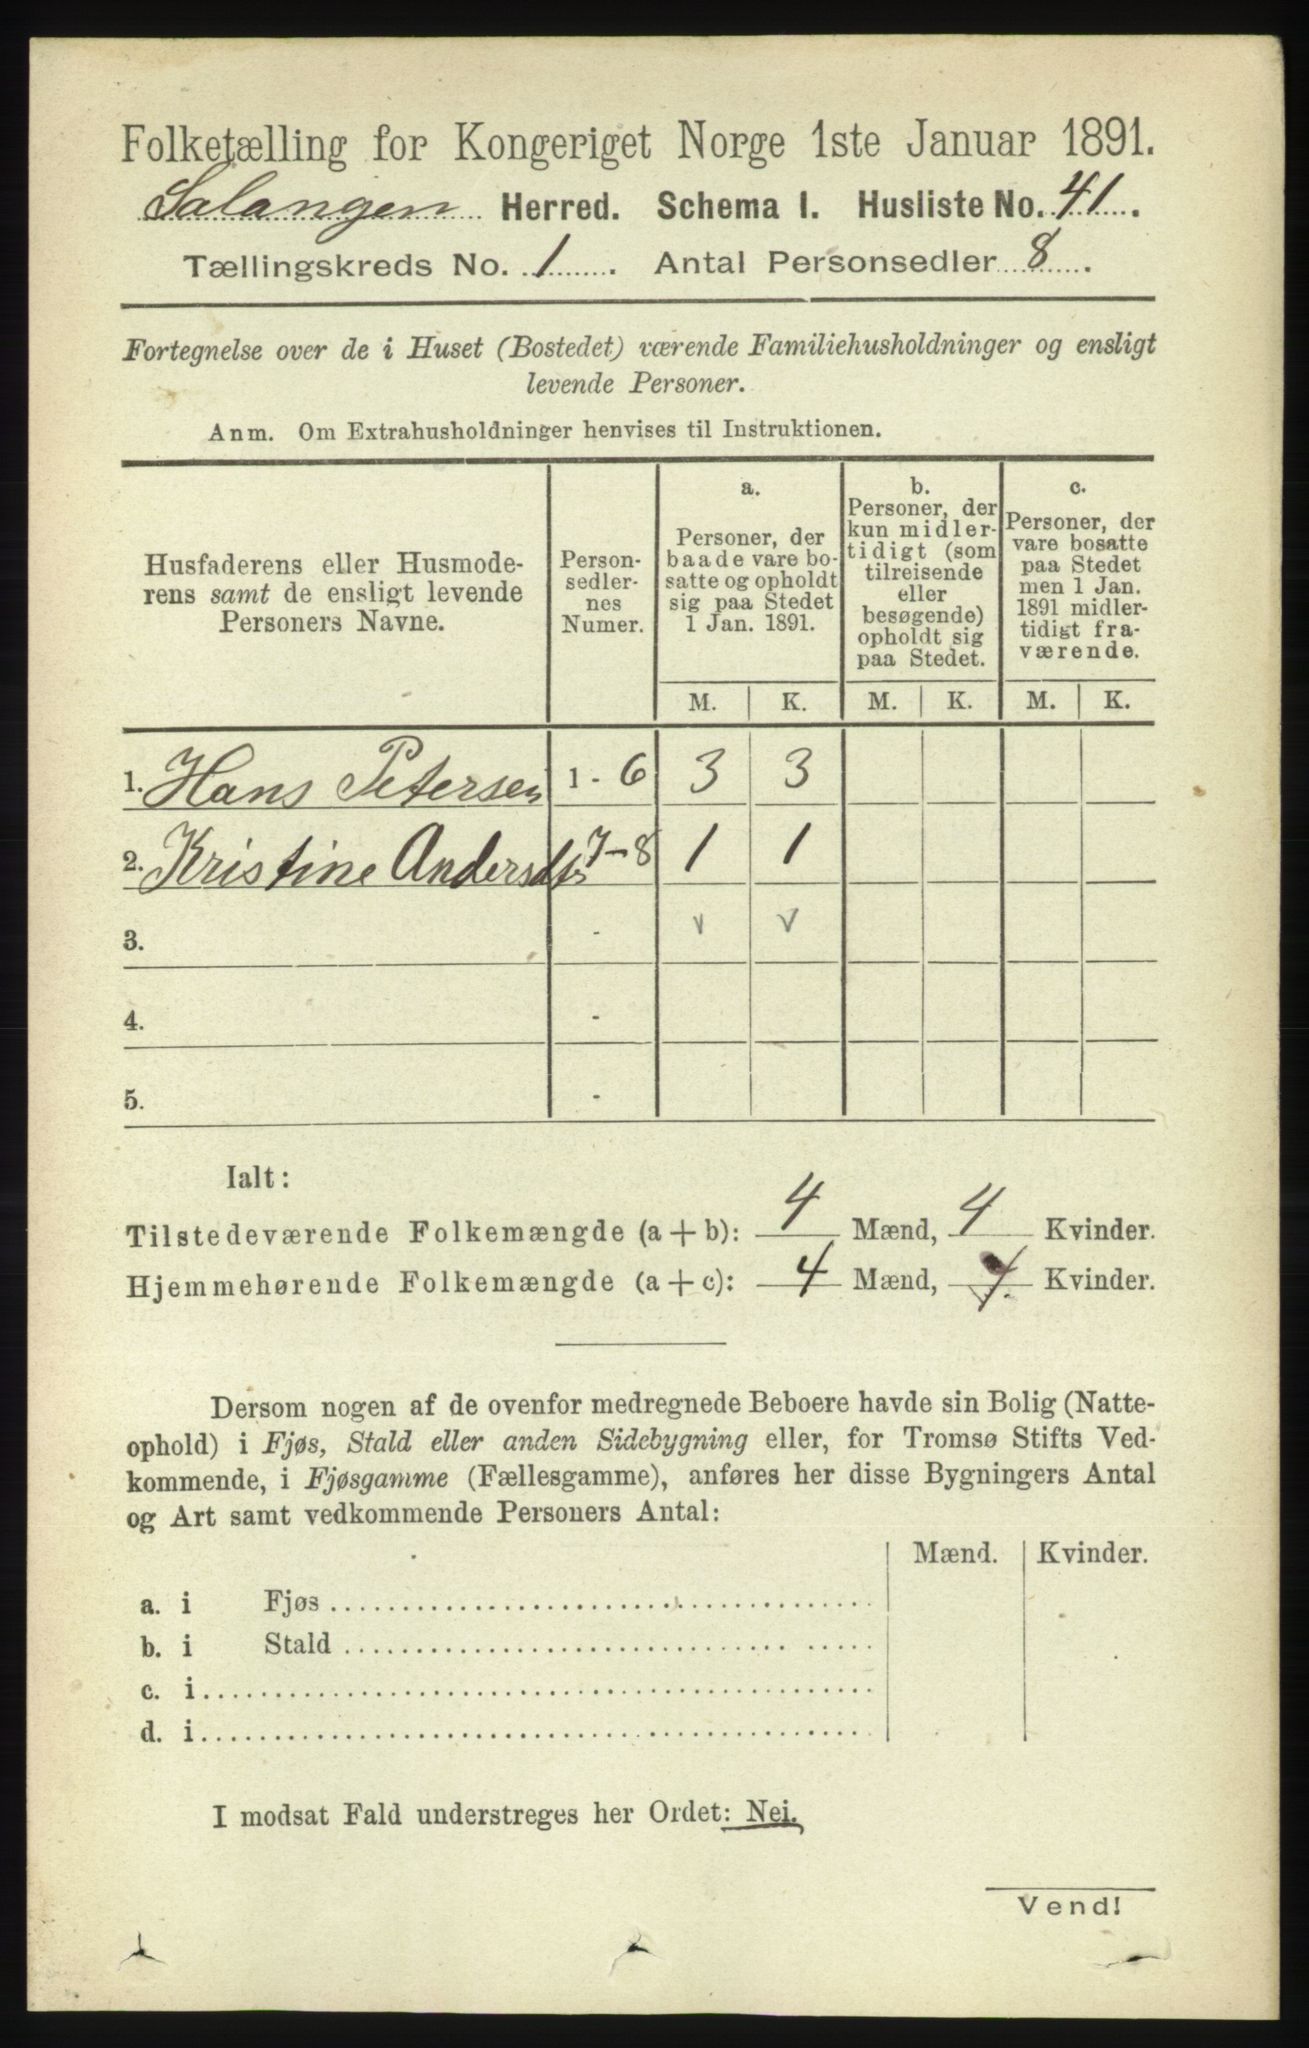 Folketælling for Kongeriget Norge 1ste Januar 1891.
Salangen Herred. Schema I. Husliste No. 41.
Tællingskreds No. 1. Antal Personsedler 8.
Fortegnelse over de i Huset (Bostedet) værende Familiehusholdninger og ensligt
levende Personer.
Anm. Om Extrahusholdninger henvises til Instruktionen.
Husfaderens eller Husmode-
rens samt de ensligt levende
Personers Navne.
Person-
sedler-
nes
Numer.
a.
Personer, der
baade vare bo-
satte og opholdt
sig paa Stedet
1 Jan. 1891.
b.
Personer, der
kun midler-
tidigt (som
tilreisende
eller
besøgende)
opholdt sig
paa Stedet.
c.
Personer, der
vare bosatte
paa Stedet
men 1 Jan.
1891 midler-
tidigt fra-
værende.
M. K. M. K. M. K.
1. Hans Petersen 1 - 6 3 3
2. Kristine Andersdtr 7-8 1 1
3. - v v
4. -
5. -
Ialt:
Tilstedeværende Folkemængde (a + b): 4 Mænd, 4 Kvinder.
Hjemmehørende Folkemængde (a + c): 4 Mænd, 4 Kvinder.
Dersom nogen af de ovenfor medregnede Beboere havde sin Bolig (Natte-
ophold) i Fjøs, Stald eller anden Sidebygning eller, for Tromsø Stifts Ved-
kommende, i Fjøsgamme (Fællesgamme), anføres her disse Bygningers Antal
og Art samt vedkommende Personers Antal:
Mænd. Kvinder.
a. i Fjøs
b. i Stald
c. i
d. i
I modsat Fald understreges her Ordet: Nei.
Vend!